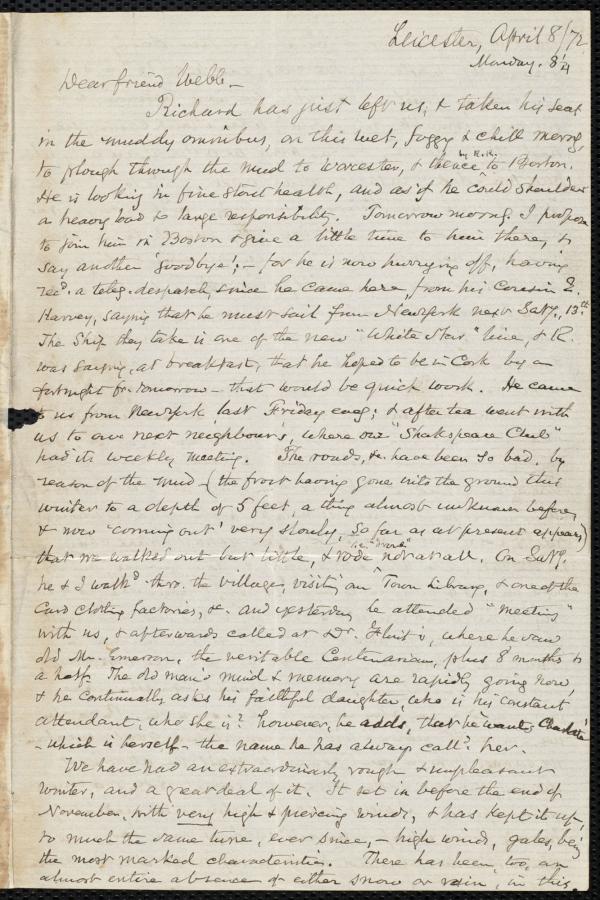 Leicester, April 8/72
Monday. 8¼
Dear friend Webb –
Richard has just left us, & taken his seat
in the muddy omnibus, on this wet, foggy & chill morng,
to plough through the mud to Worcester, & thence by R.R. to Boston.
He is looking in fine stout health, and as if he could shoulder
a heavy load & large responsibility. Tomorrow morng. I propose
to join him in Boston & give a little time to him there, &
say another 'goodbye'; – for he is now hurrying off, having
recd. a teleg. despatch, since he came here, from his cousin E.
Harvey, saying that he must sail from NewYork next Saty., 13th.
The Ship they take is one of the new "White Star" line, & R.
was saying, at breakfast, that he hoped to be in Cork by a
fortnight fr. tomorrow – that would be quick work. He came
to us from NewYork last Friday eveg; & after tea went with
us to our next neighbour's, where our "Shakspeare Club"
had its weekly meeting. The roads, &c. have been so bad, by
reason of the mud – (the frost having gone into the ground this
winter to a depth of 5 feet, a thing almost unknown before,
& now 'coming out' very slowly, so far as at present appears)
that we walked out but little, & rode not at all. On Saty.
he & I walkd. thro. the village, visitg. our Town Library, & one of the
Card clothg. factories, &c. and yesterday he attended "meeting"
with us, & afterwards called at Dr. Flint's, where he saw
old Mr. Emerson, the veritable Centenarian, plus 8 months &
a half. The old man's mind & memory are rapidly going now,
& he continually asks his faithful daughter, who is his constant
attendant, who she is? however, he adds, that he wants
– which is herself – the name he has always calld. her.
We have had an extraordinarily rough & unpleasant
winter, and a great deal of it. It set in before the end of
November, with very high & piercing winds, & has kept it up,
to much the same tune, ever since, – high winds, gales, being
the most marked characteristics. There has been, too, an
almost entire absence of either snow or rain, in this